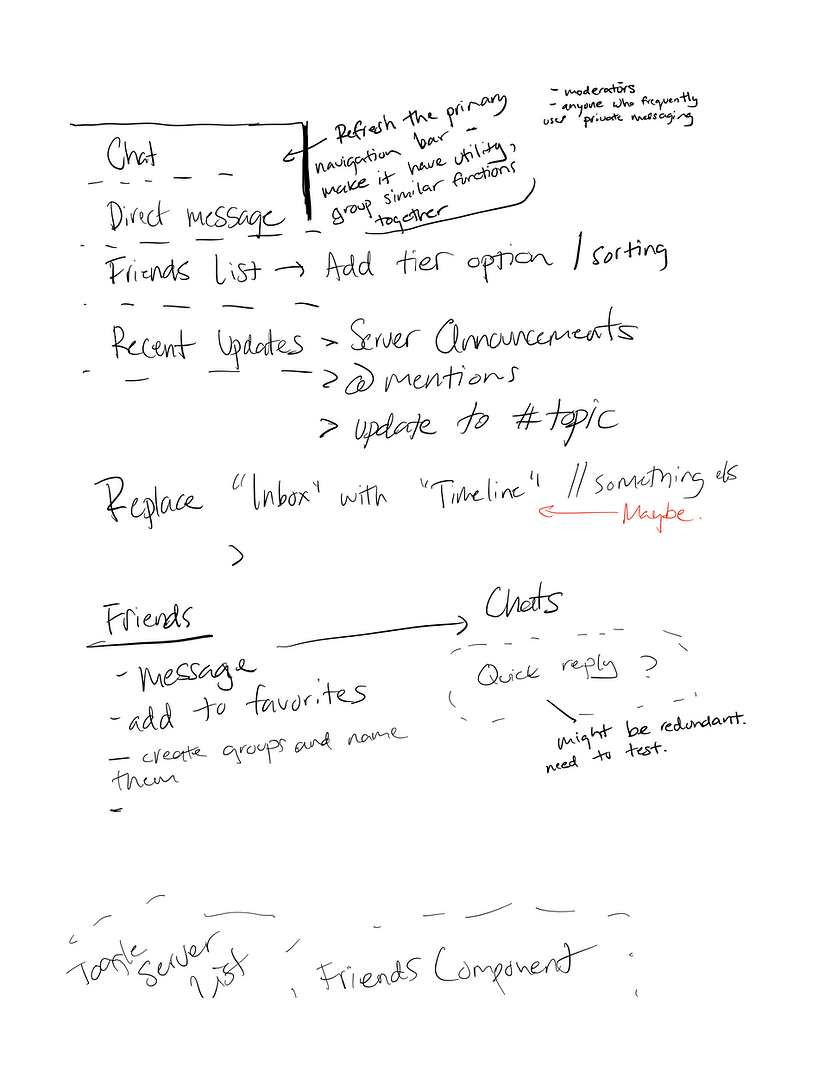 - moderators
- anyone who frequently
uses private messaging
Refresh the primary
navigation bar -
make it have utility,
group similar functions
together
Chat
Direct message
Friends list → Add tier option / sorting
Recent Updates > Server Announcements
> @mentions
> update to #topic
Replace "Inbox" with "Timeline" // something els
← Maybe.
>
Friends → Chats
- message
- add to favorites
- create groups and name
them
-
Quick reply ?
might be redundant.
need to test.
Toggle
Server
List
Friends Component